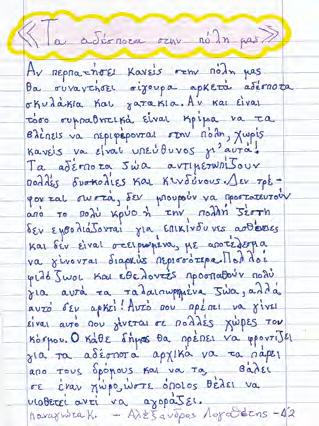 «Τα αδέσποτα στην πόλη μας»
Αν περπατήσει κανείς στην πόλη μας
θα συναντήσει σίγουρα αρκετά αδέσποτα
σκυλάκια και γατάκια. Αν και είναι
τόσο συμπαθητικά είναι κρίμα να τα
βλέπεις να περιφέρονται στην πόλη, χωρίς
κανείς να είναι υπεύθυνος γι' αυτά!
Τα αδέσποτα ζώα αντιμετωπίζουν
πολλές δυσκολίες και κινδύνους. Δεν τρέ-
φονται σωστά, δεν μπορούν να προστατευτούν
από το πολύ κρύο ή την πολλή ζέστη
δεν εμβολιάζονται για επικίνδυνες ασθένειες
και δεν είναι στειρωμένα, με αποτέλεσμα
να γίνονται διαρκώς περισσότερα. Πολλοί
φιλόζωοι και εθελοντές προσπαθούν πολύ
για αυτά τα ταλαιπωρημένα ζώα, αλλά
αυτό δεν αρκεί! Αυτό που πρέπει να γίνει
είναι αυτό που γίνεται σε πολλές χώρες του
κόσμου. Ο κάθε δήμος θα πρέπει να φροντίζει
για τα αδέσποτα αρχικά να τα πάρει
από τους δρόμους και να τα βάλει
σε έναν χώρο, ώστε όποιος θέλει να
υιοθετεί αντί να αγοράζει.
Παναγιώτα Κ. - Αλέξανδρος Λογοθέτης - Δ2